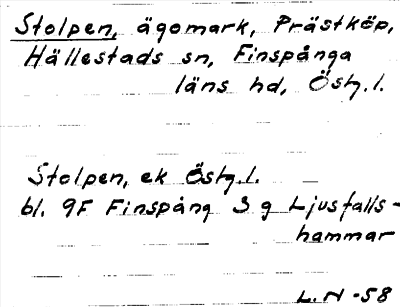 Stolpen, ägomark, Prästköp,
Hällestads sn, Finspånga
läns hd, Östg.l.
Stolpen, ek Östg.l.
bl. 9F Finspång 3 g Ljusfalls-
hammar
L.N -58